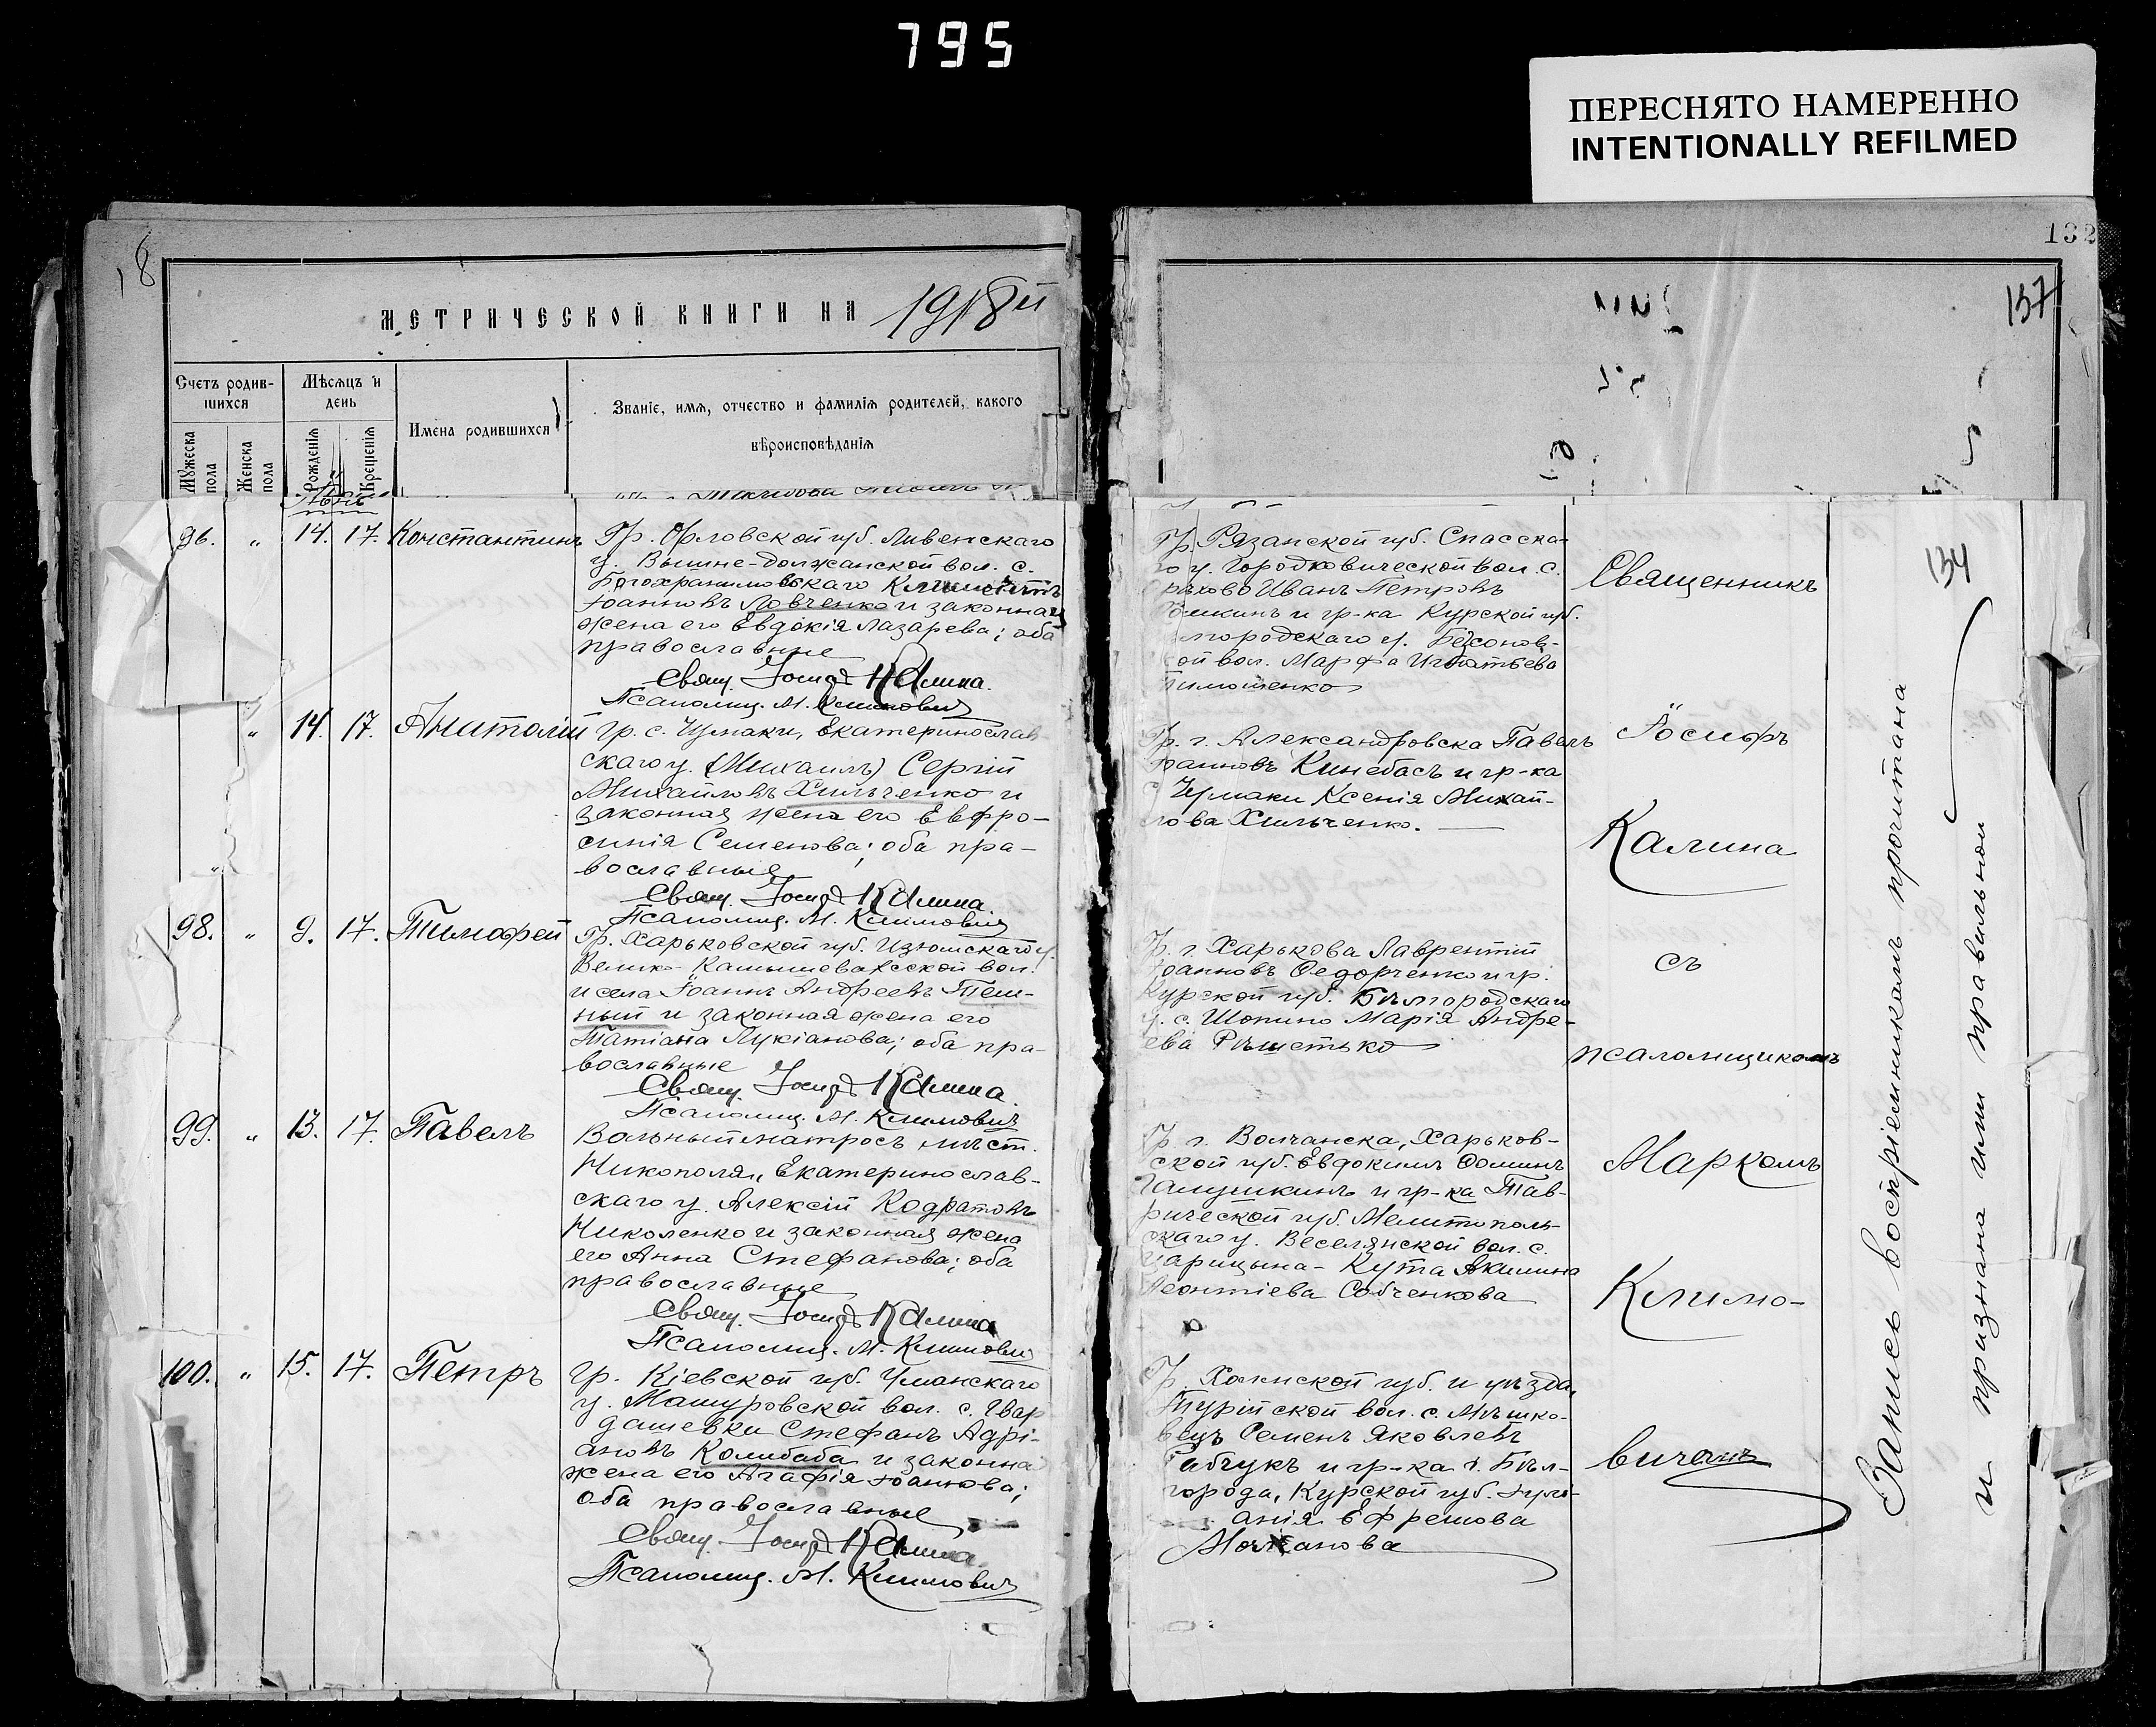 795
ПЕРЕСНЯТО НАМЕРЕННО
INTENTIONALLY REFILMED
18
132
137
МЕТРИЧЕСКОЙ КНИГИ НА 1918й
Счетъ родив-
шихся
Мѣсяцъ и
день
Имена родившихся
Званіе, имя, отчество и фамилія родителей, какого
вѣроисповѣданія
Мужеска
пола
Женска
пола
Рожденія
Крещенія
96. " 14. 17. Константинъ
Гр. Орловской губ. Ливенскаго
у. Вышне-должанской вол. с.
Іоанновъ Ловченко и законная
жена его Евдокія Лазарева; оба
православные
Свящ. Іосифъ Калина.
Псаломщ. М. Климовичъ
" 14. 17. Анатолій
гр. с. Чумаки, Екатеринослав-
скаго у. (Михаилъ) Сергій
Михайловъ Хильченко и
законная жена его Евфро-
синія Семенова; оба пра-
вославные
Свящ. Іосифъ Калина.
Псаломщ. М. Климовичъ
98. " 9. 17. Тимофей
Гр. Харьковской губ. Изюмскаго у.
Велико-Камышевахской вол.
и села Іоаннъ Андреевъ Тем-
ный и законная жена его
Татіана Лукіанова; оба пра-
вославные
Свящ. Іосифъ Калина.
Псаломщ. М. Климовичъ
99. " 13. 17. Павелъ
Вольный матросъ мѣст.
Никополя, Екатеринослав-
скаго у. Алексій Кодратовъ
Николенко и законная жена
его Анна Стефанова; оба
православные
Свящ. Іосифъ Калина
Псаломщ. М. Климовичъ
100. " 15. 17. Петръ
гр. Кіевской губ. Уманскаго
у. Машуровской вол. с. Гвар
дашевки Стефанъ Адрі-
ановъ Колибаба и законна
жена его Агафія Іоаннова;
оба православные
Свящ. Іосифъ Калина.
Псаломщ. М. Климовичъ
Гр. Рязанской губ. Спасска-
го у. Городковической вол. с.
Иванъ Петровъ
и гр-ка Курской губ.
городского у. Бесонов-
ой вол. Марфа Игнатьева
Тимошенко
Гр. г. Александровска Павелъ
Іоанновъ Кинебасъ и гр-ка
с. Чумаки Ксенія Михай-
лова Хильченко.
Гр. г. Харькова Лаврентій
Іоанновъ Федорченко и гр.
Курской губ. Бѣлгородскаго
у. с. Шопино Марія Андре-
ева Рѣшетько
Гр. г. Волчанска, Харьков-
ской губ. Евдокимъ Фоминъ
Галушкинъ и гр-ка Тав-
рической губ. Мелитополь-
скаго у. Веселянской вол. с.
Царицына-Кута Акилина
Леонтіева Собченкова
Гр. Холмской губ. и уѣзда,
Турійской вол. с. Мѣшко-
вецъ Семенъ Яковлевъ
Габчукъ и гр-ка г. Бѣл-
города, Курской губ. Іулі-
анія Ефремова
Молчанова
Священникъ
Іосифъ
Калина
съ
псаломщикомъ
Маркомъ
Климо-
вичемъ
134
Запись воспріемникамъ прочитана
и признана ими правильной